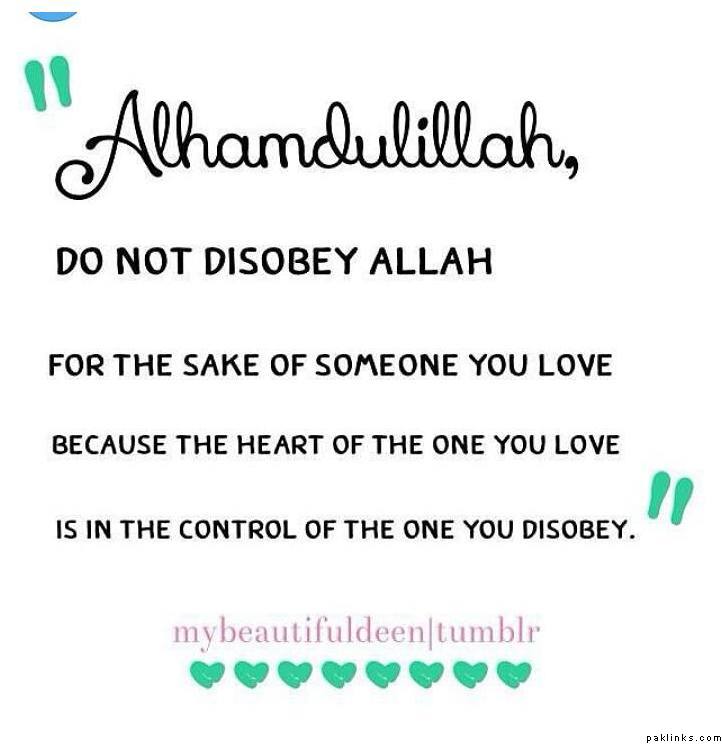 "Alhamdulillah,
DO NOT DISOBEY ALLAH
FOR THE SAKE OF SOMEONE YOU LOVE
BECAUSE THE HEART OF THE ONE YOU LOVE
IS IN THE CONTROL OF THE ONE YOU DISOBEY."
mybeautifuldeen|tumblr
paklinks.com